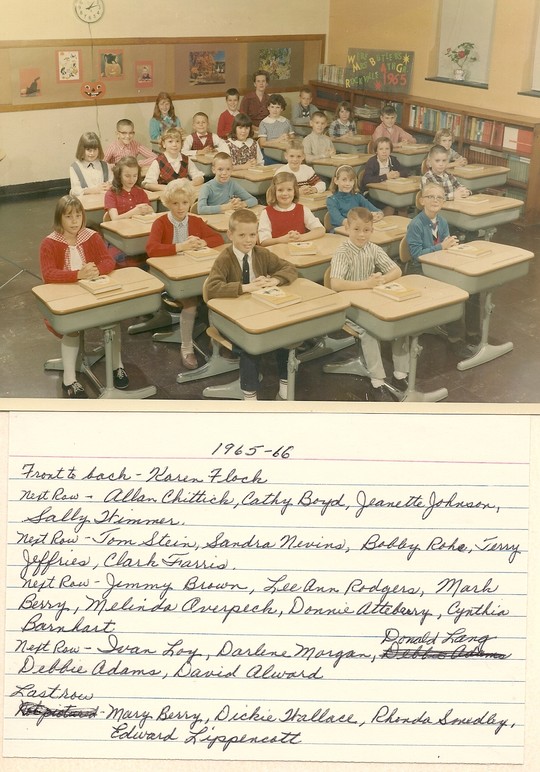 MISS
ROOSEVELT
1965
1965-66
Front to back - Karen Floch
Next Row - Allan Chittick, Cathy Boyd, Jeanette Johnson,
Sally Wimmer.
Next Row - Tom Stein, Sandra Nevins, Bobby Rohe, Terry
Jeffries, Clark Farris.
Next Row - Jimmy Brown, Lee Ann Rodgers, Mark
Berry, Melinda Averpech, Donnie Atteberry, Cynthia
Barnhart
Donald Lang
Next Row - Ivan Loy, Darlene Morgan, Debbie Adams
Debbie Adams, David Alward
Last row
Not pictured - Mary Berry, Dickie Wallace, Rhonda Smedley,
Edward Lippencott